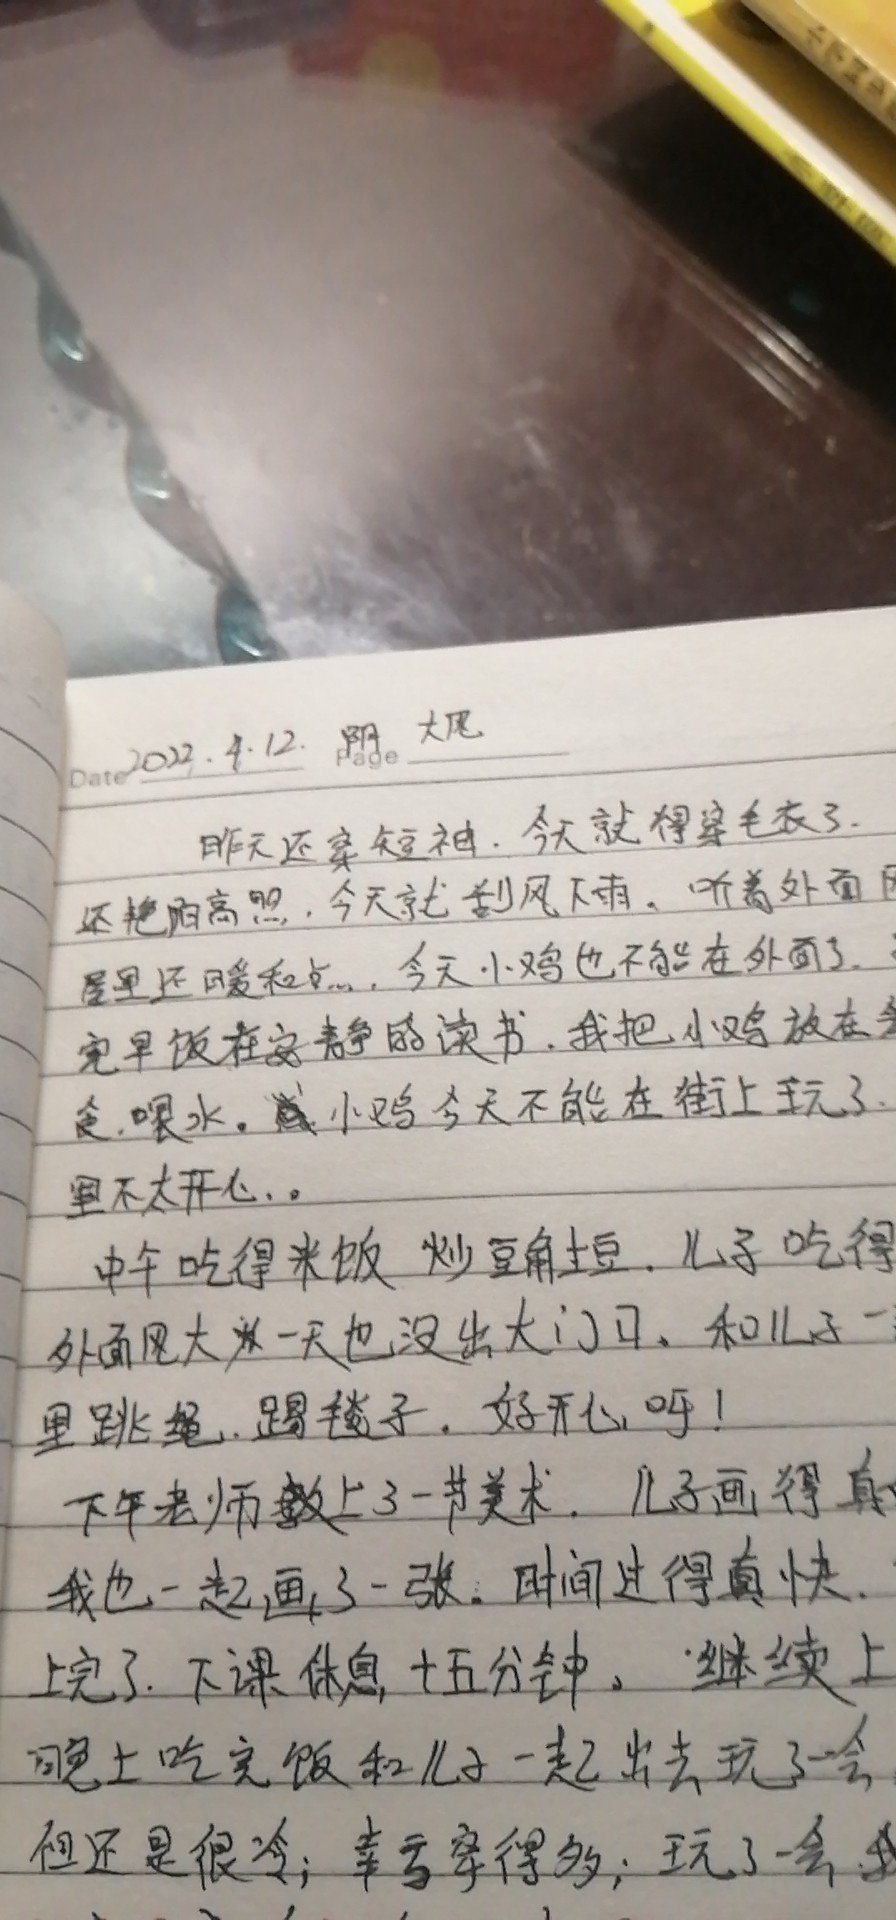 Date 2022.4.12. Page 阴 大风
昨天还穿短袖.今天就得穿毛衣了.
还艳阳高照.今天就刮风下雨。听着外面
屋里还暖和点....今天小鸡也不能在外面了.
完早饭在安静的读书.我把小鸡放在
食.喂水。小鸡今天不能在街上玩了.
里不太开心.。
中午吃得米饭 炒豆角土豆.儿子吃得
外面风大 一天也没出大门口。和儿子一
里跳绳.踢毽子.好开心呀!
下午老师教上了一节美术.儿子画得真
我也一起画了一张。时间过得真快.
上完了.下课休息十五分钟。继续上
晚上吃完饭和儿子一起出去玩了一会
但还是很冷;幸亏穿得多;玩了一会